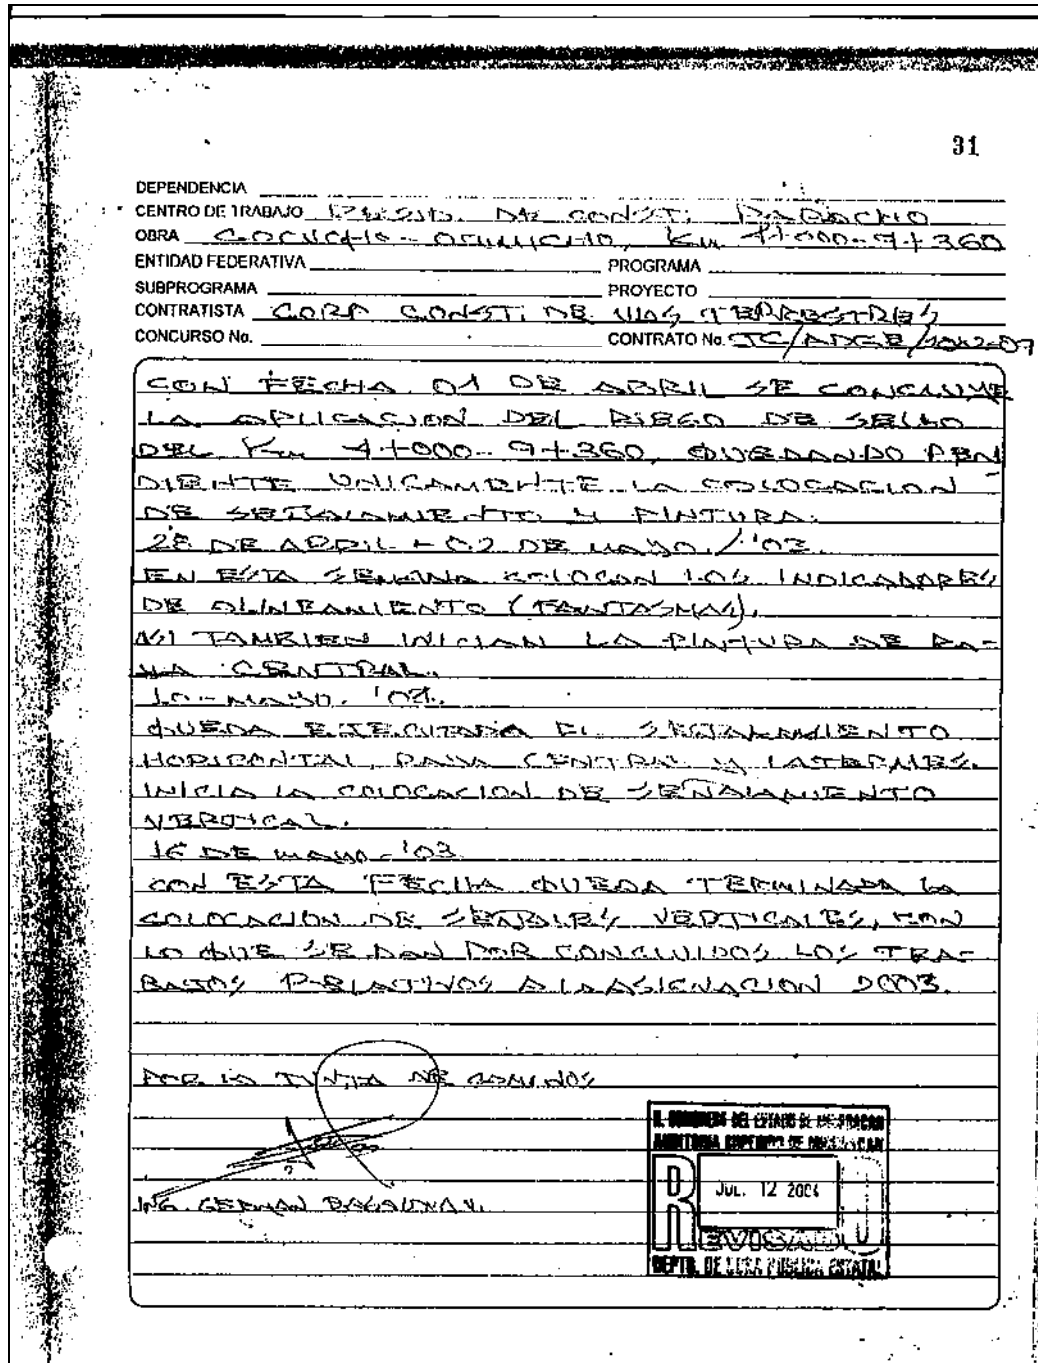 31
DEPENDENCIA
CENTRO DE TRABAJO RESID. DE CONST. PARACHO
OBRA COCUCHO - OCUMICHO, Km 4+000-9+360
ENTIDAD FEDERATIVA PROGRAMA
SUBPROGRAMA PROYECTO
CONTRATISTA CORP CONST. DE VIAS TERRESTRES
CONCURSO No. CONTRATO No.
CON FECHA 01 DE ABRIL SE CONCLUYE
LA APLICACION DEL RIEGO DE SELLO
DEL Km 4+000-9+360, QUEDANDO PEN
DIENTE UNICAMENTE LA COLOCACION
DE SEÑALAMIENTO Y PINTURA.
28 DE ABRIL - 02 DE MAYO./'03.
EN ESTA SEMANA COLOCAN LOS INDICADORES
DE ALINEAMIENTO (FANTASMAS),
ASI TAMBIEN INICIAN LA PINTURA DE RA-
YA CENTRAL.
10-MAYO. '03.
QUEDA EJECUTADA EL SEÑALAMIENTO
HORIZONTAL, RAYA CENTRAL Y LATERALES.
INICIA LA COLOCACION DE SEÑALAMIENTO
VERTICAL.
16 DE MAYO-'03
CON ESTA FECHA QUEDA TERMINADA LA
COLOCACION DE SEÑALES VERTICALES, CON
LO QUE SE DAN POR CONCLUIDOS LOS TRA-
BAJOS RELATIVOS A LA ASIGNACION 2003.
POR LA JUNTA DE CAMINOS
ING. GERMAN
H. CONGRESO DEL ESTADO DE MICHOACAN
AUDITORIA SUPERIOR DE MICHOACAN
JUL. 12 2004
REVISADO
DEPTO. DE OBRA PUBLICA ESTATAL